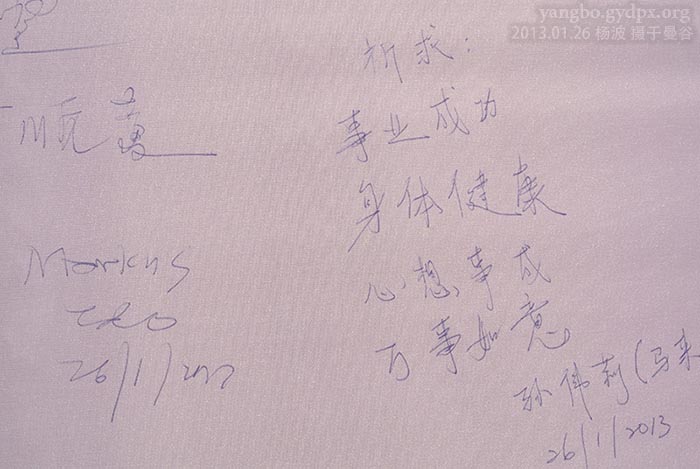 yangbo.gydpx.org
2013.01.26 杨波 摄于曼谷
祈求：
事业成功
身体健康
心想事成
万事如意
孙伟莉（马来
26/1/2013
顺意
Markus
26/1/2013